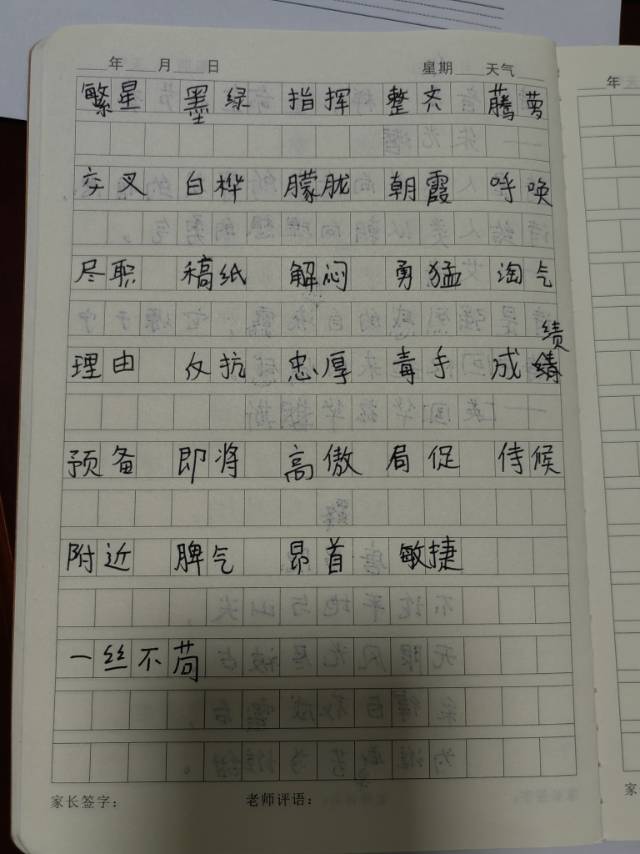 年 月 日 星期 天气
繁星 墨绿 指挥 整齐 藤萝
交叉 白桦 朦胧 朝霞 呼唤
尽职 稿纸 解闷 勇猛 淘气
绩
理由 反抗 忠厚 毒手 成
预备 即将 高傲 局促 侍候
附近 脾气 昂首 敏捷
一丝不苟
家长签字： 老师评语：
年
家